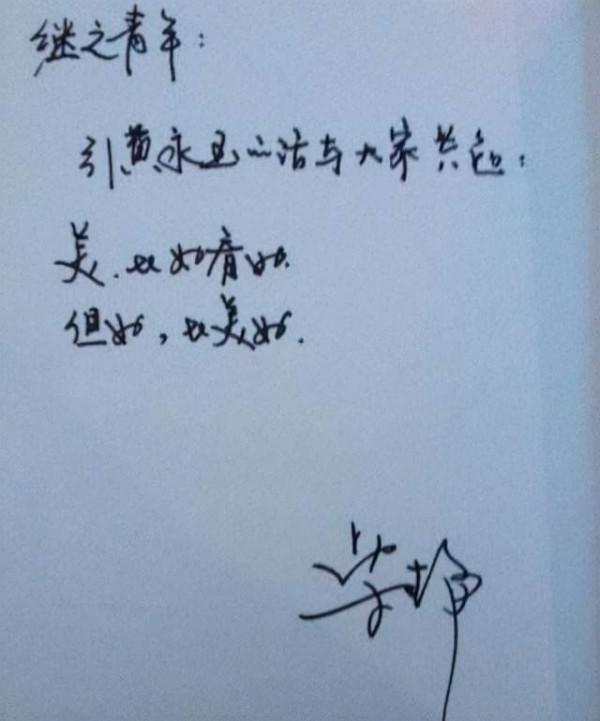 继之青年：
引黄永玉的话与大家共勉：
美，比好看好.
但好，比美好.
柴静